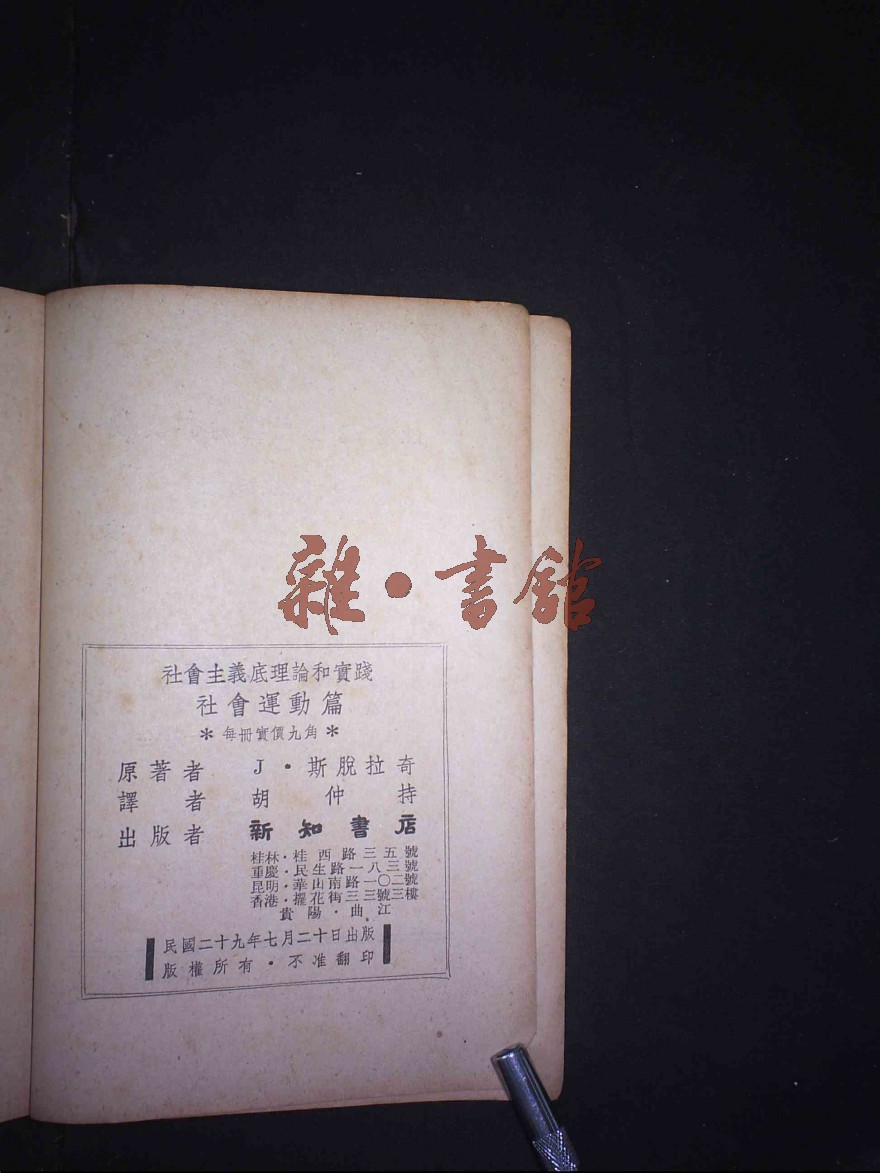 雜·書館
社會主義底理論和實踐
社會運動篇
＊每冊實價九角＊
原著者 J·斯脫拉奇
譯者 胡仲持
出版者 新知書店
桂林·桂西路三五號
重慶·民生路一八三號
昆明·華山南路一〇二號
香港·擺花街三三號三樓
貴陽·曲江
民國二十九年七月二十日出版
版權所有·不准翻印